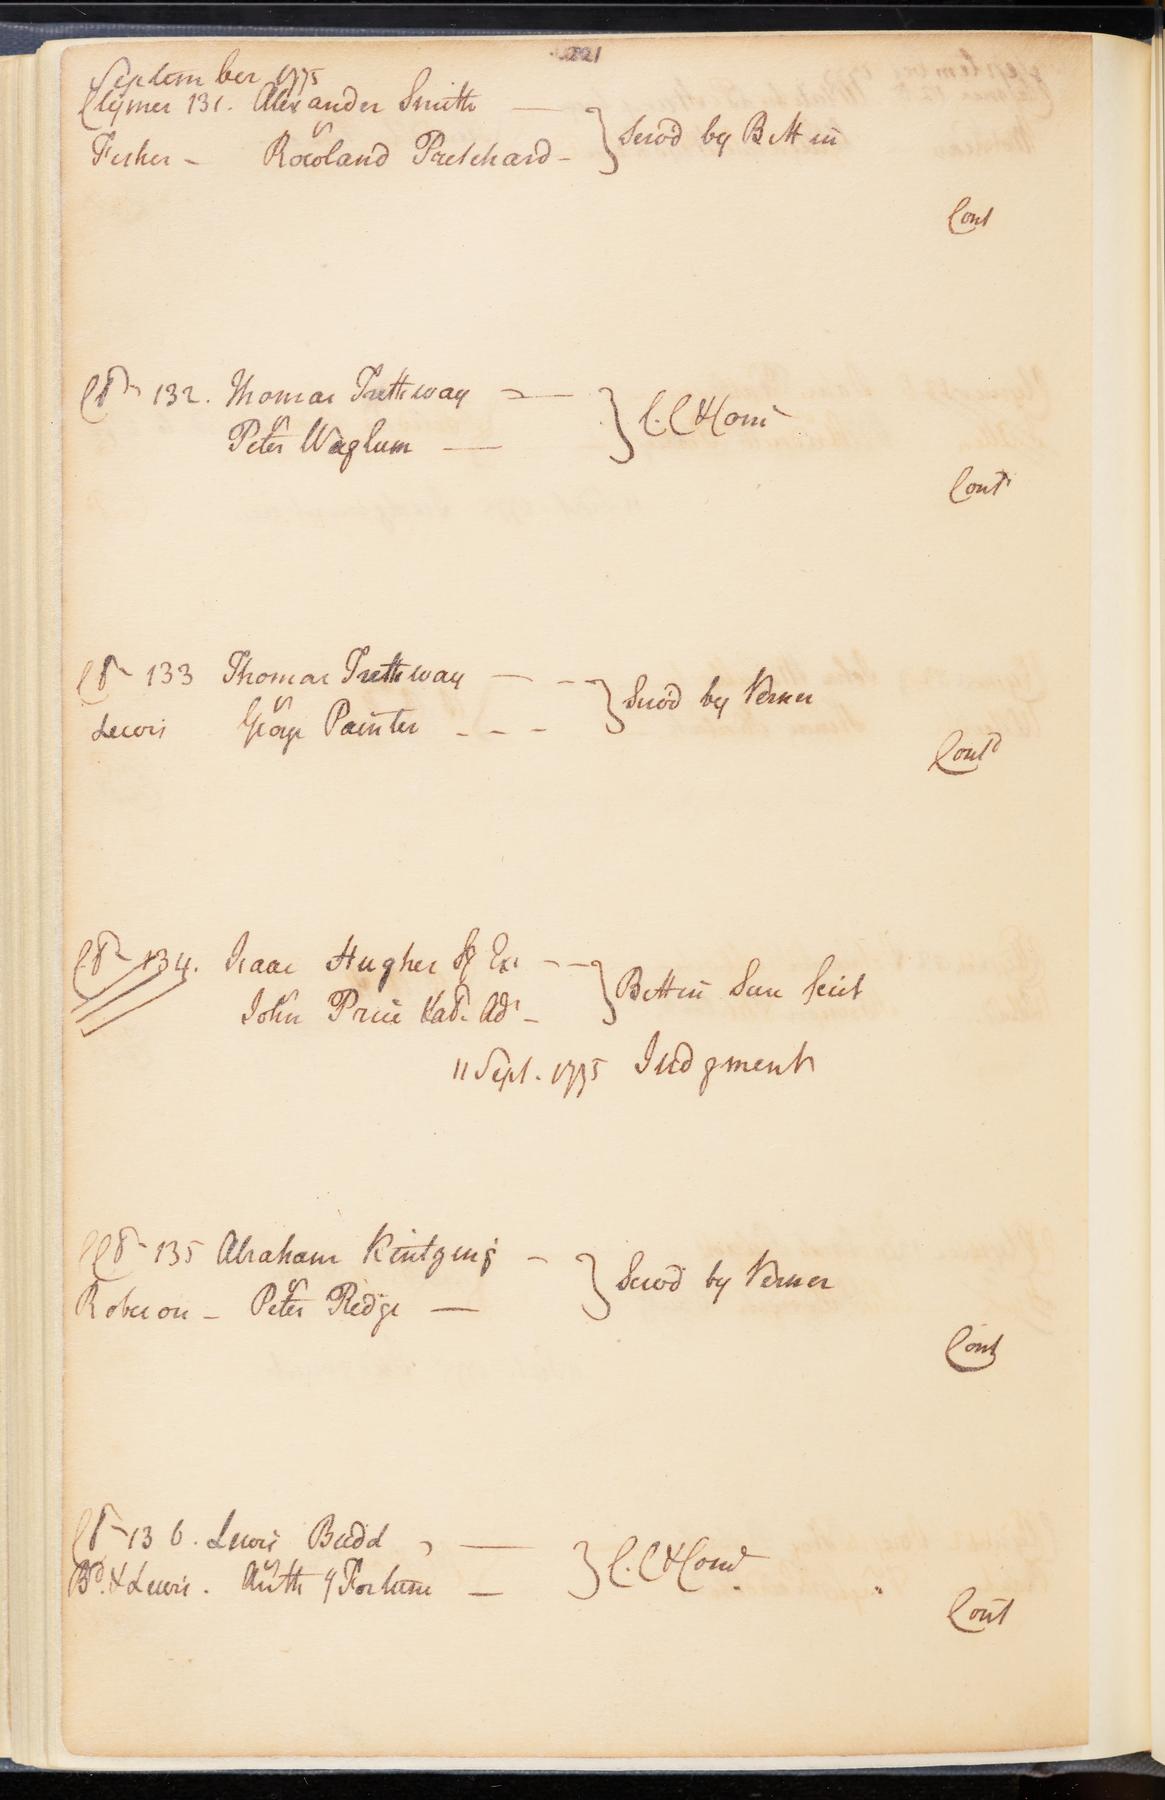 September 1775
Clymer 131. Alexander Smith —
v
Fisher - Rowland Pritchard - } Serv'd by Bettin
Cont
Cl 132. Thomas Trettiway —
v
Peter Waglum — } C. C & Com
Cont
Cl 133 Thomas Trettiway - -
v
Lewis George Painter - - - } Serv'd by Verner
Cont
Cl 134. Isaac Hughes Exr - -
John Price Adr - } Bettin Sur Scict
11 Sept. 1775 Judgment
Cl 135 Abraham Kintzing -
v
Roberson - Peter Ridge — } Serv'd by Verner
Cont
Cl 136. Lewis Budd —
v
Bd. & Lewis. Auth y Fortune — } C. C & Com
Cont